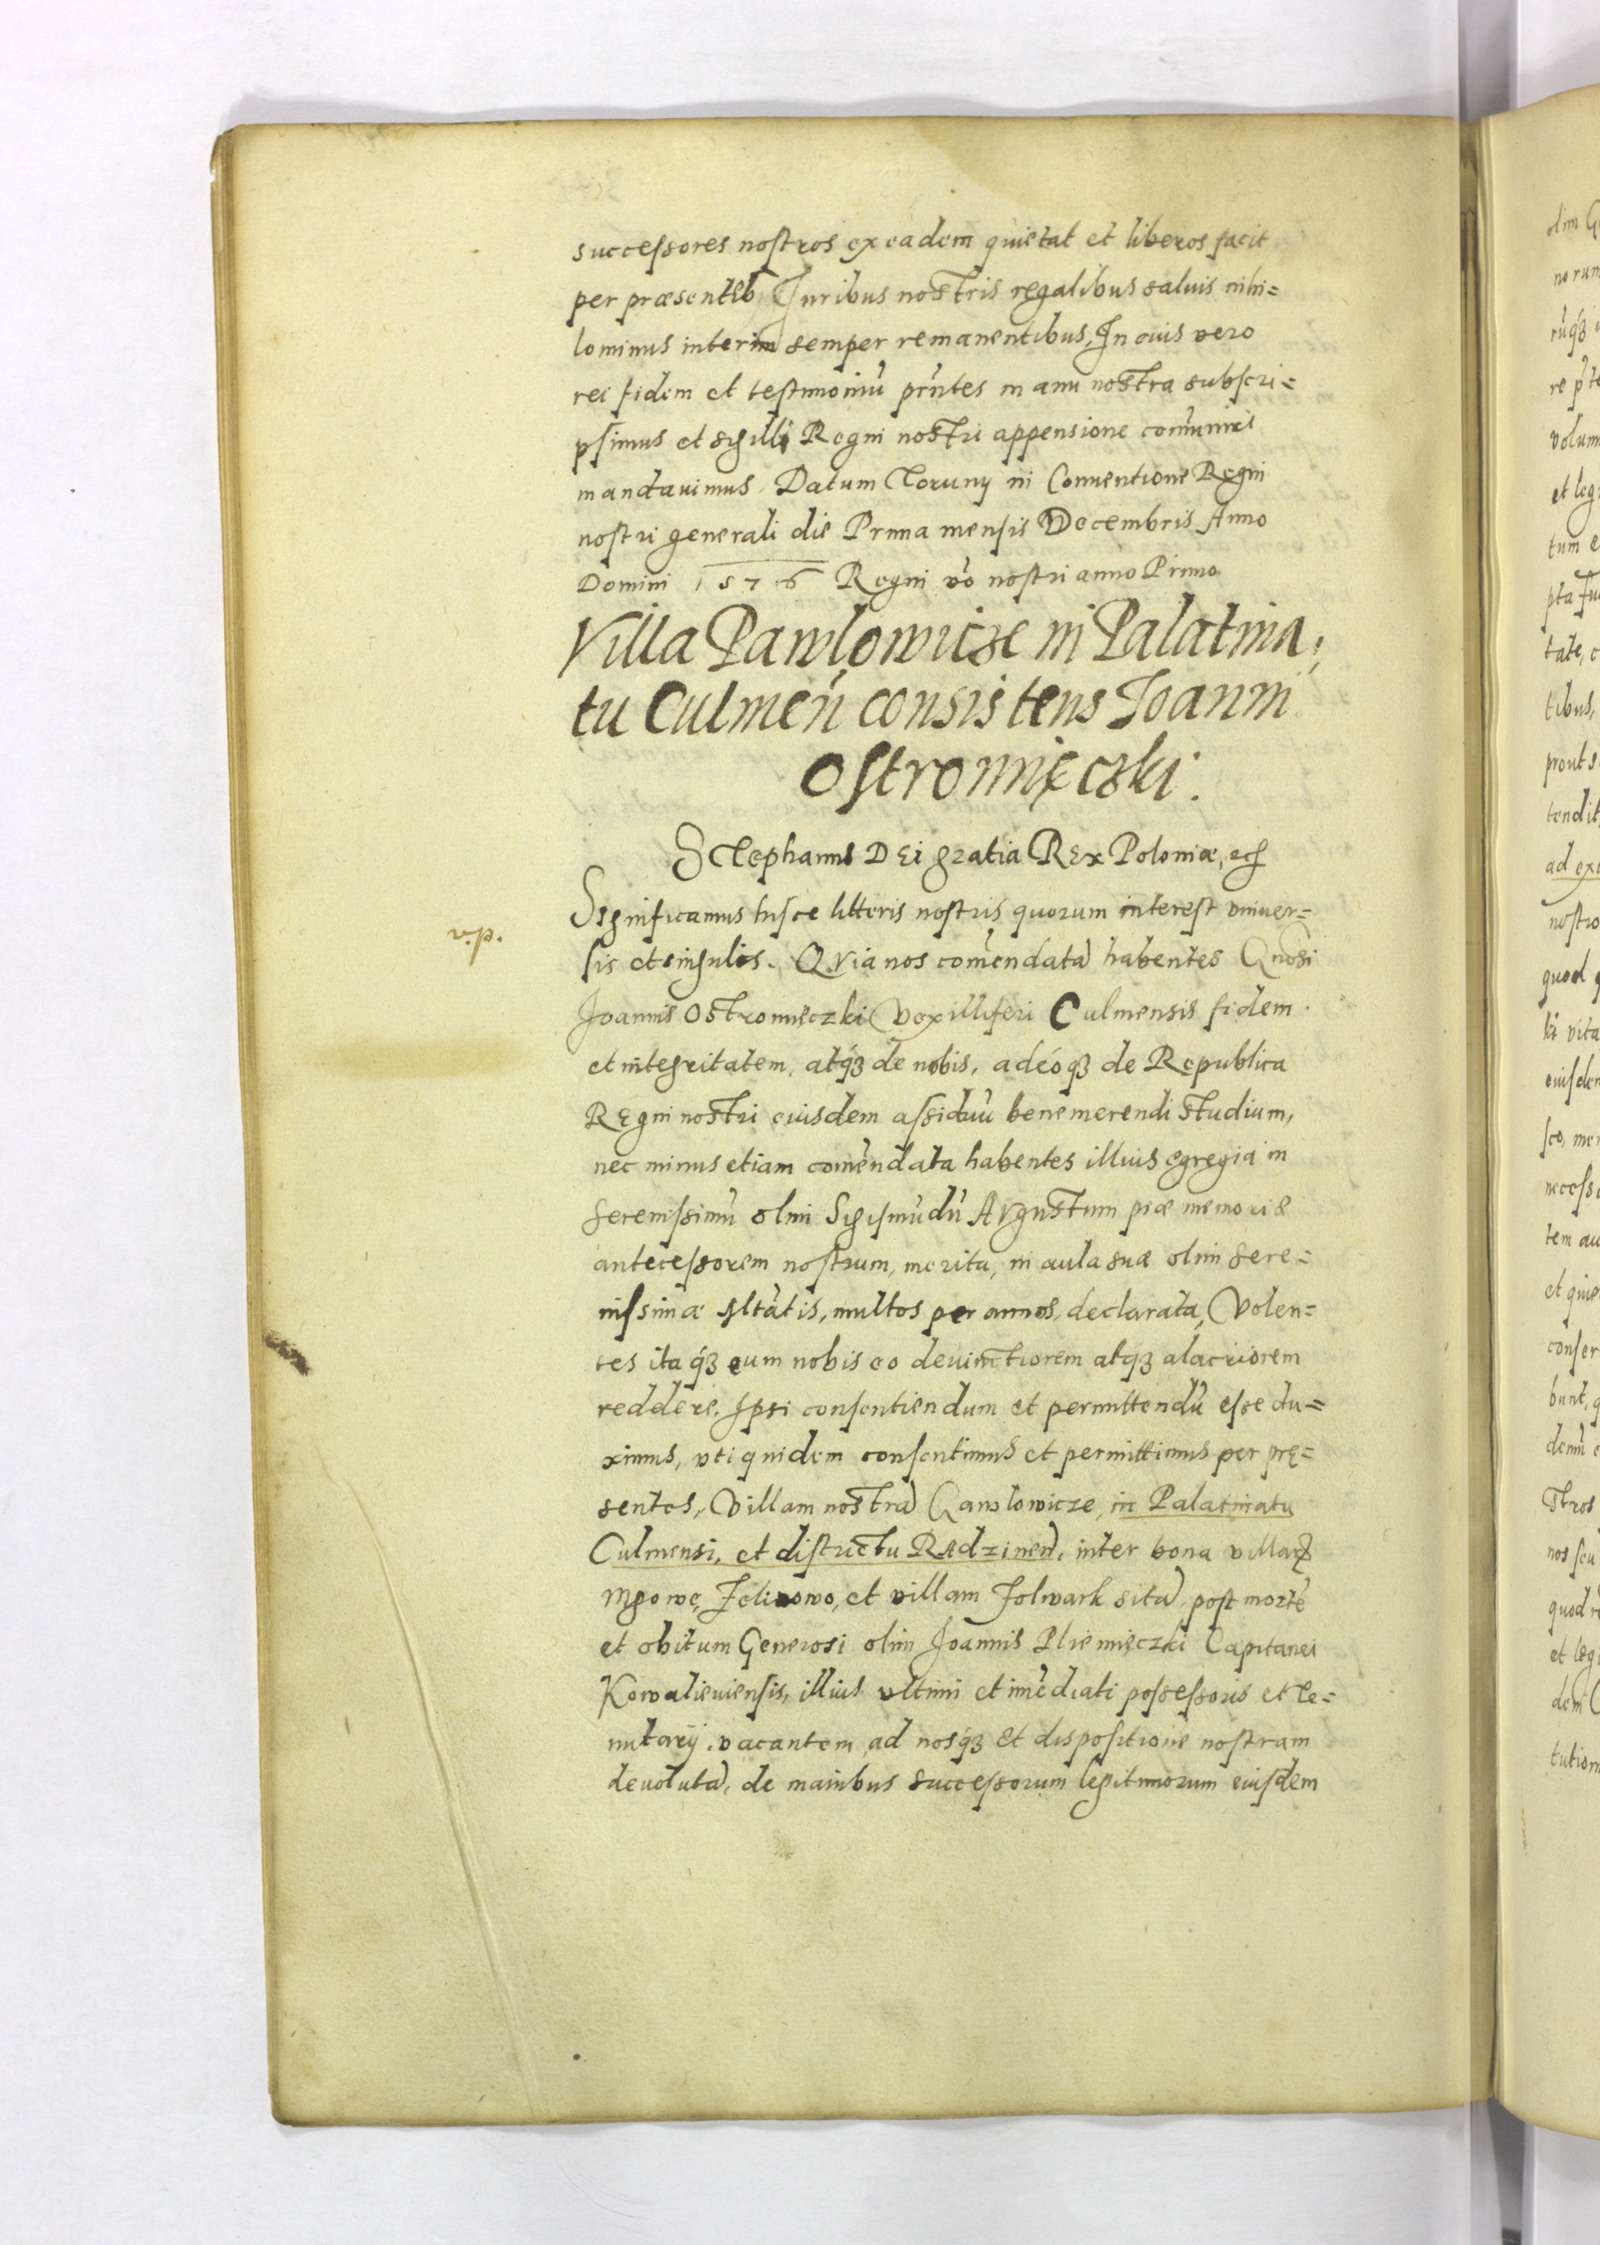 successores nostros ex eadem quietat et liberos facit
per præsenteb Juribus nostris regalibus saluis nihi=
lominus interim semper remanentibus, In cuis vero
rei fidem et testimoniũ pñtes manu nostra subscri=
psimus et sigilli Regni nostri appensione com̃uniri
mandauimus. Datum Toruny in Conuentione Regni
nostri generali die Prima mensis Decembris Anno
Domini 1576 Regni vo nostri anno Primo
Villa Pawlowicze in Palatina,
tu Culmeñ consistens Joanni
Ostromięczki.
Stephanus DEi gratia REx Poloniæ, ecz
Significamus hisce litteris nostris quorum interest vniuer=
sis et singulis. QVia nos com̃endata habentes Gnosi
Joannis Ostromięczki Vexilliferi Culmensis fidem
et integritatem, atq́ꝫ de nobis, adeóqꝫ de Republica
REgni nostri eiusdem assiduũ benemerendi studium,
nec minus etiam com̃endata habentes illius egregia in
serenissimũ olim Sigismũdũ AVgustum piæ memoriæ
antecessorem nostrum, merita, in aula suæ olim sere=
nissimæ Mtãtis, multos per annos, declarata, Volen=
tes itaq́ꝫ eum nobis eo deuinctiorem atq́ꝫ alacriorem
reddere, Ipsi consentiendum et permittendũ esse du=
ximus, vti quidem consentimus et permittimus per prę=
sentes, Villam nostrã Pawlowicze, in Palatinatu
Culmensi, et districtu RAdzinen, inter bona villarꝫ
Mgowe, et villam Folwark sitã, post mortẽ
et obitum Generosi olim Joannis Pliemięczki Capitanei
Kowalieuiensis, illius vltimi et im̃ediati possessoris et te=
nutarij, vacantem, ad nosq́ꝫ et dispositione nostram
deuolutã, de manibus successorum legitimorum eiusdem